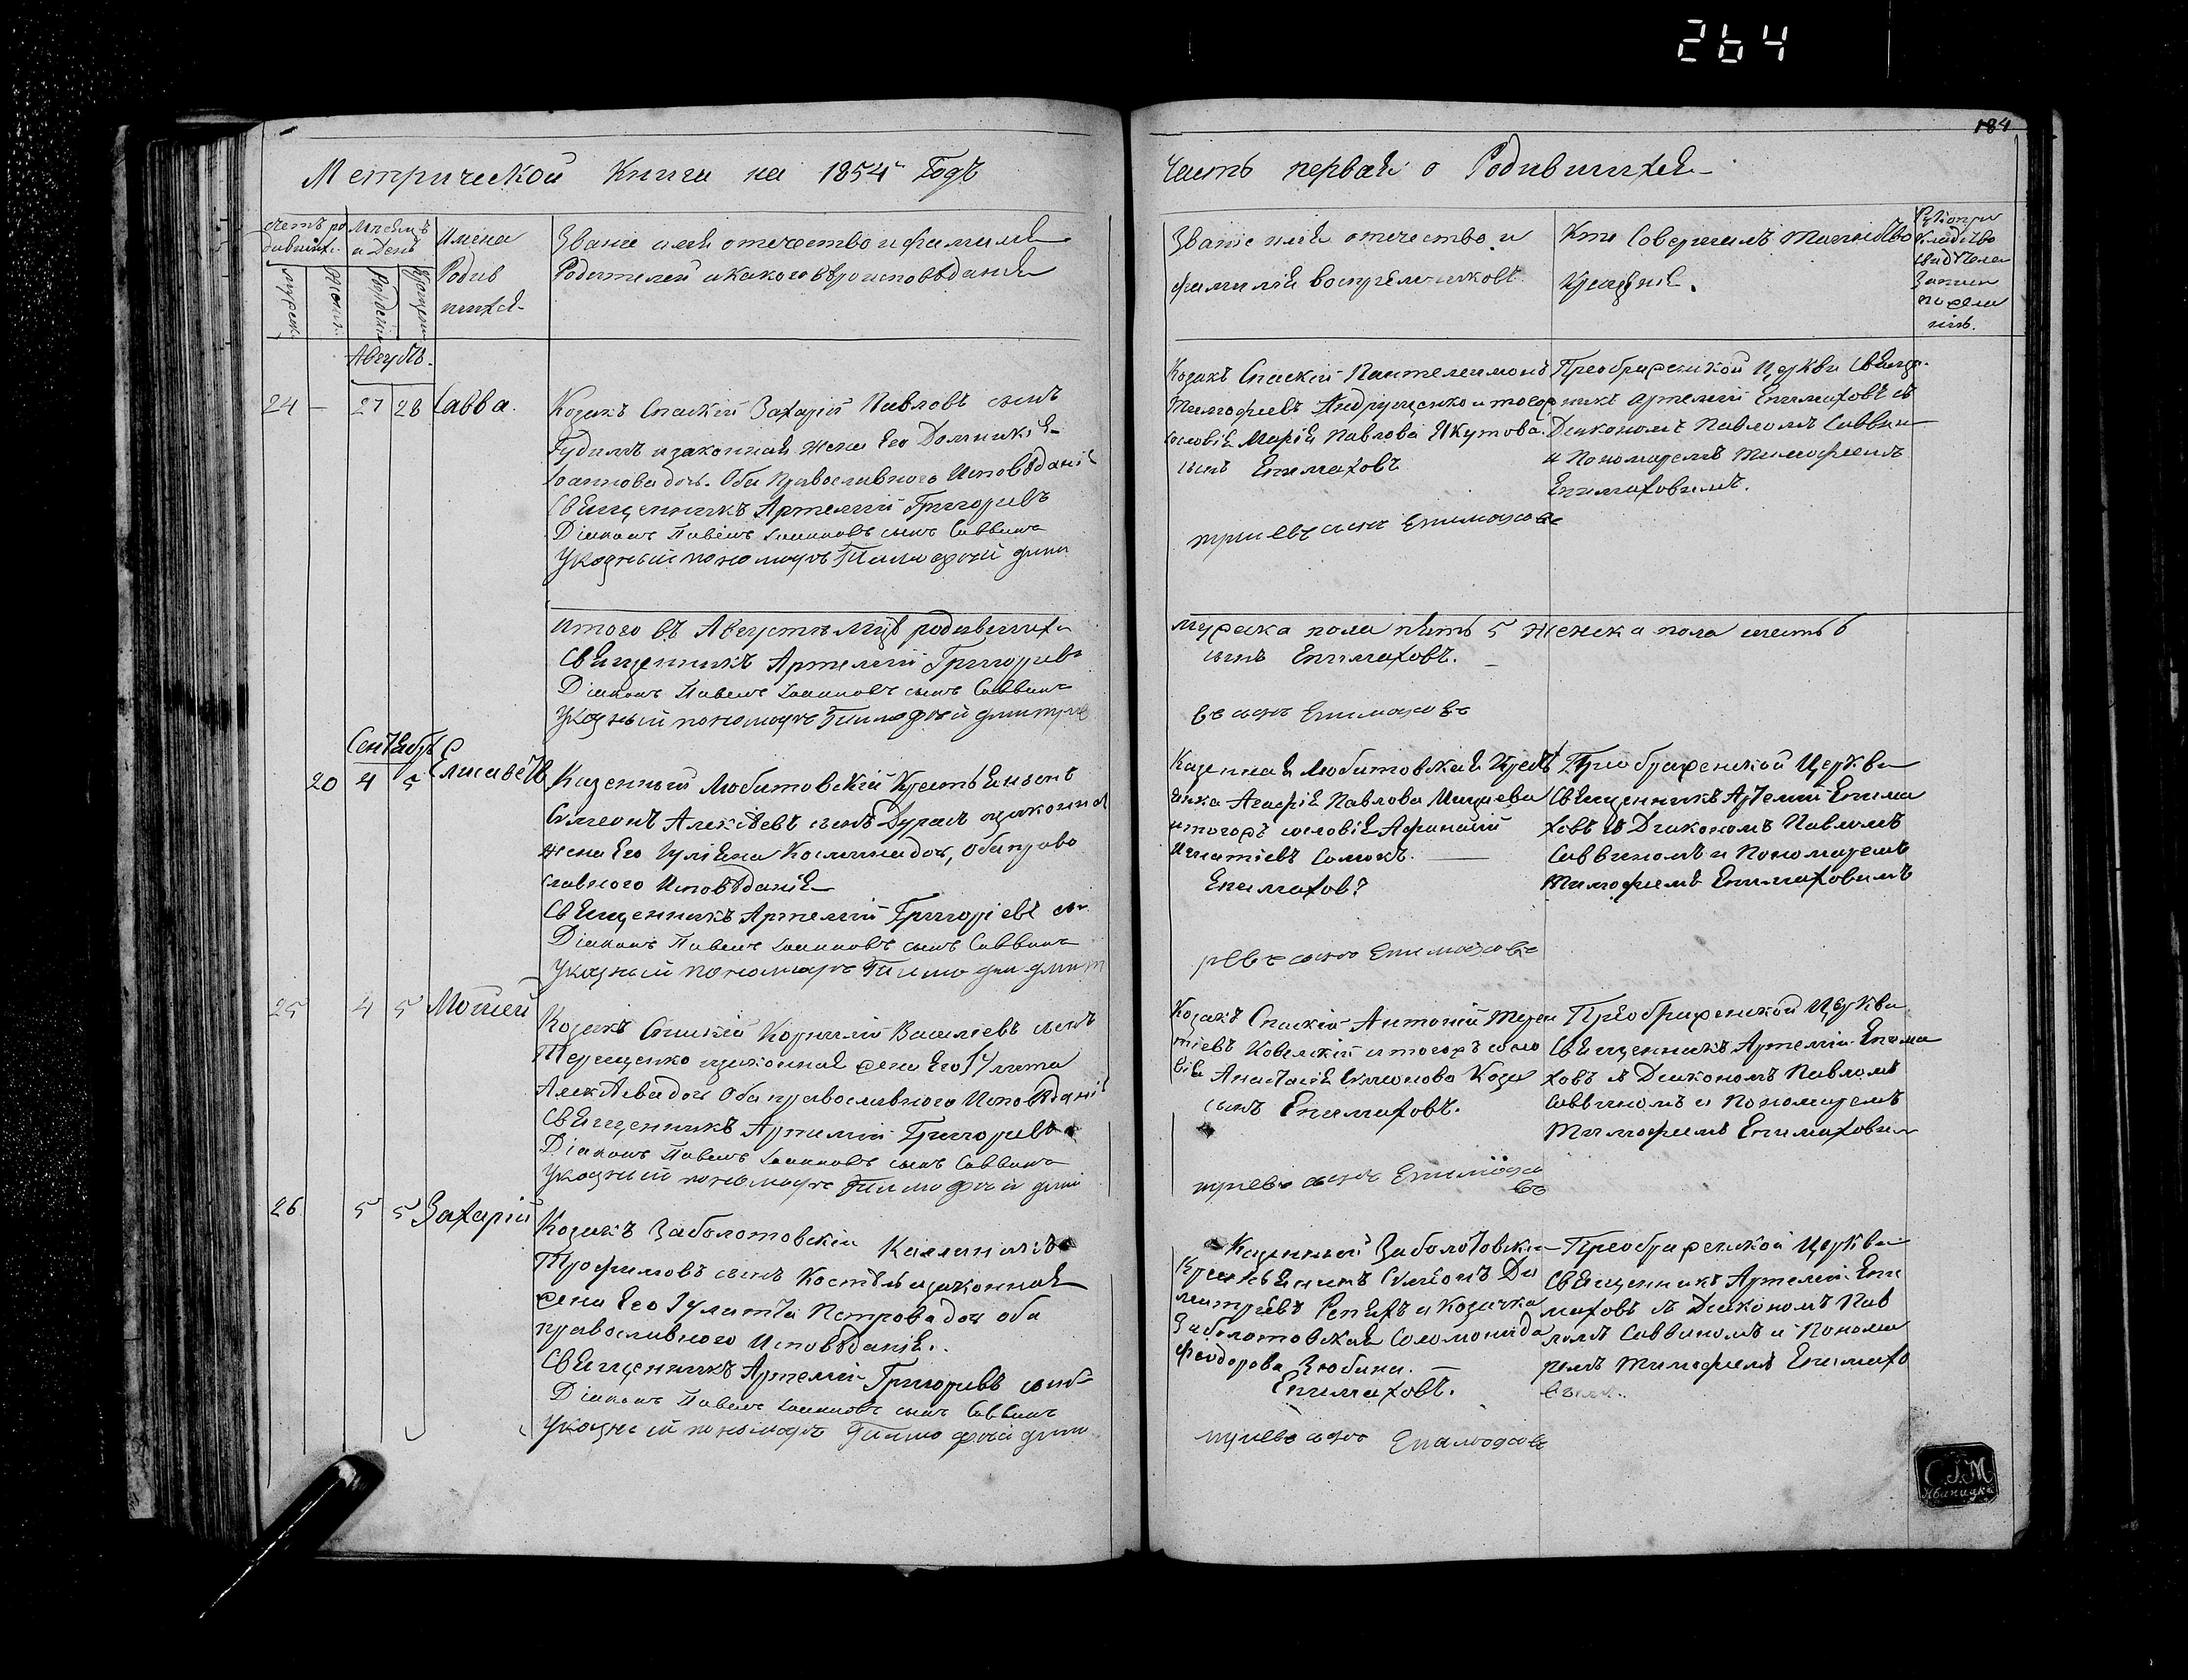 264
184
Метрической Книги на 1854 Годъ
Часть первая о Родившихся
счетъ ро
дившихс.
мужеск.
женск.
Месяцъ
и День
Рожден.
Крещен.
Имена
Родив
шихся
Званіе имя отечество и фамилия
Родителей и какого вѣроисповѣданія
Званіе имя отечество и
фамилія воспреемниковъ
Кто Совершилъ Таинство
Крещенія.
Августъ.
24 — 27 28 Савва.
Козакъ Спаскій Захарій Павловъ сынъ
Гудимъ и законная жена Его Домникія
Іоаннова доч. Оба Православного Исповѣданія
Священникъ Артемій Григорьевъ
Діаконъ Павелъ Іоанновъ сынъ Саввинъ
Указный пономарь Тимофей Дми
Козакъ Спаскій Пантелеимонъ
Тимофеевъ Андрущенко и тогож
сословія Марія Павлова Якутова.
сынъ Епимаховъ
тріевъ сынъ Епимаховъ
Преображенской Церкви Свяще-
никъ Артемій Епимаховъ съ
Діакономъ Павломъ Саввин
и Пономаремъ Тимофеемъ
Епимаховимъ.
Итого въ Августѣ мцѣ родившихся
Священникъ Артемій Григорьевъ
Діаконъ Павелъ Іоанновъ сынъ Саввинъ
Указный пономарь Тимофей Дмитріе
мужска пола пять 5 женска пола шесть 6
сынъ Епимаховъ.
въ сынъ Епимаховъ
Сентябрь
20 4 5 Елисавета
Казенный Любитовскій Крестьянинъ
Симеонъ Алексѣевъ сынъ Дурасъ и законная
жена Его Іуліана Космина доч, оба право
славного Исповѣданія
Священникъ Артемій Григоріевъ сы
Діаконъ Павелъ Іоанновъ сынъ Саввинъ
Указный пономарь Тимофей Дмит
Казенная Любитовская Крестья
янка Агафія Павлова Мищаева
и тогожъ сословія Афанасій
Игнатіевъ Сомокъ.
Епимаховъ
ріевъ сынъ Епимаховъ
Преображенской Церкви
Священникъ Артемій Епима
ховъ съ Діакономъ Павломъ
Саввиномъ и Пономаремъ
Тимофеемъ Епимаховимъ
25 4 5 Моисей
Козакъ Спаскій Корнилій Василіевъ сынъ
Терещенко и законная жена Его Іулита
Алексѣева доч Оба православного Исповѣданія
Священникъ Артемій Григорьевъ
Діаконъ Павелъ Іоанновъ сынъ Саввинъ
Указный пономарь Тимофей Дми
Козакъ Спаскій Антоній Терен
тіевъ Ковалскій и тогожъ сосло
вія Анастасія Симонова Коза
сынъ Епимаховъ.
тріевъ сынъ Епимахо
въ
Преображенской Церкви
Священникъ Артемій Епима
ховъ съ Діакономъ Павломъ
Саввиномъ и Пономаремъ
Тимофеемъ Епимаховим
26 5 5 Захарій
Козакъ Заболотовскій Каллиникъ
Трофимовъ сынъ Костѣль и законная
жена Его Іулитта Петрова доч оба
православного Исповѣданія.
Священникъ Артемій Григорьевъ сынъ
Діаконъ Павелъ Іоанновъ сынъ Саввинъ
Указный пономарь Тимофей Дми
Казенный Заболотовскій
Крестьянинъ Симеонъ Ди
митріевъ Репяхъ и Козачка
Заболотовская Соломонида
Феодорова Зюбина. —
Епимаховъ.
тріевъ сынъ Епимаховъ
Преображенской Церкви
Священникъ Артемій Епи
маховъ съ Діакономъ Пав
ломъ Саввиномъ и Понома
ремъ Тимофеемъ Епимахо
вымъ.